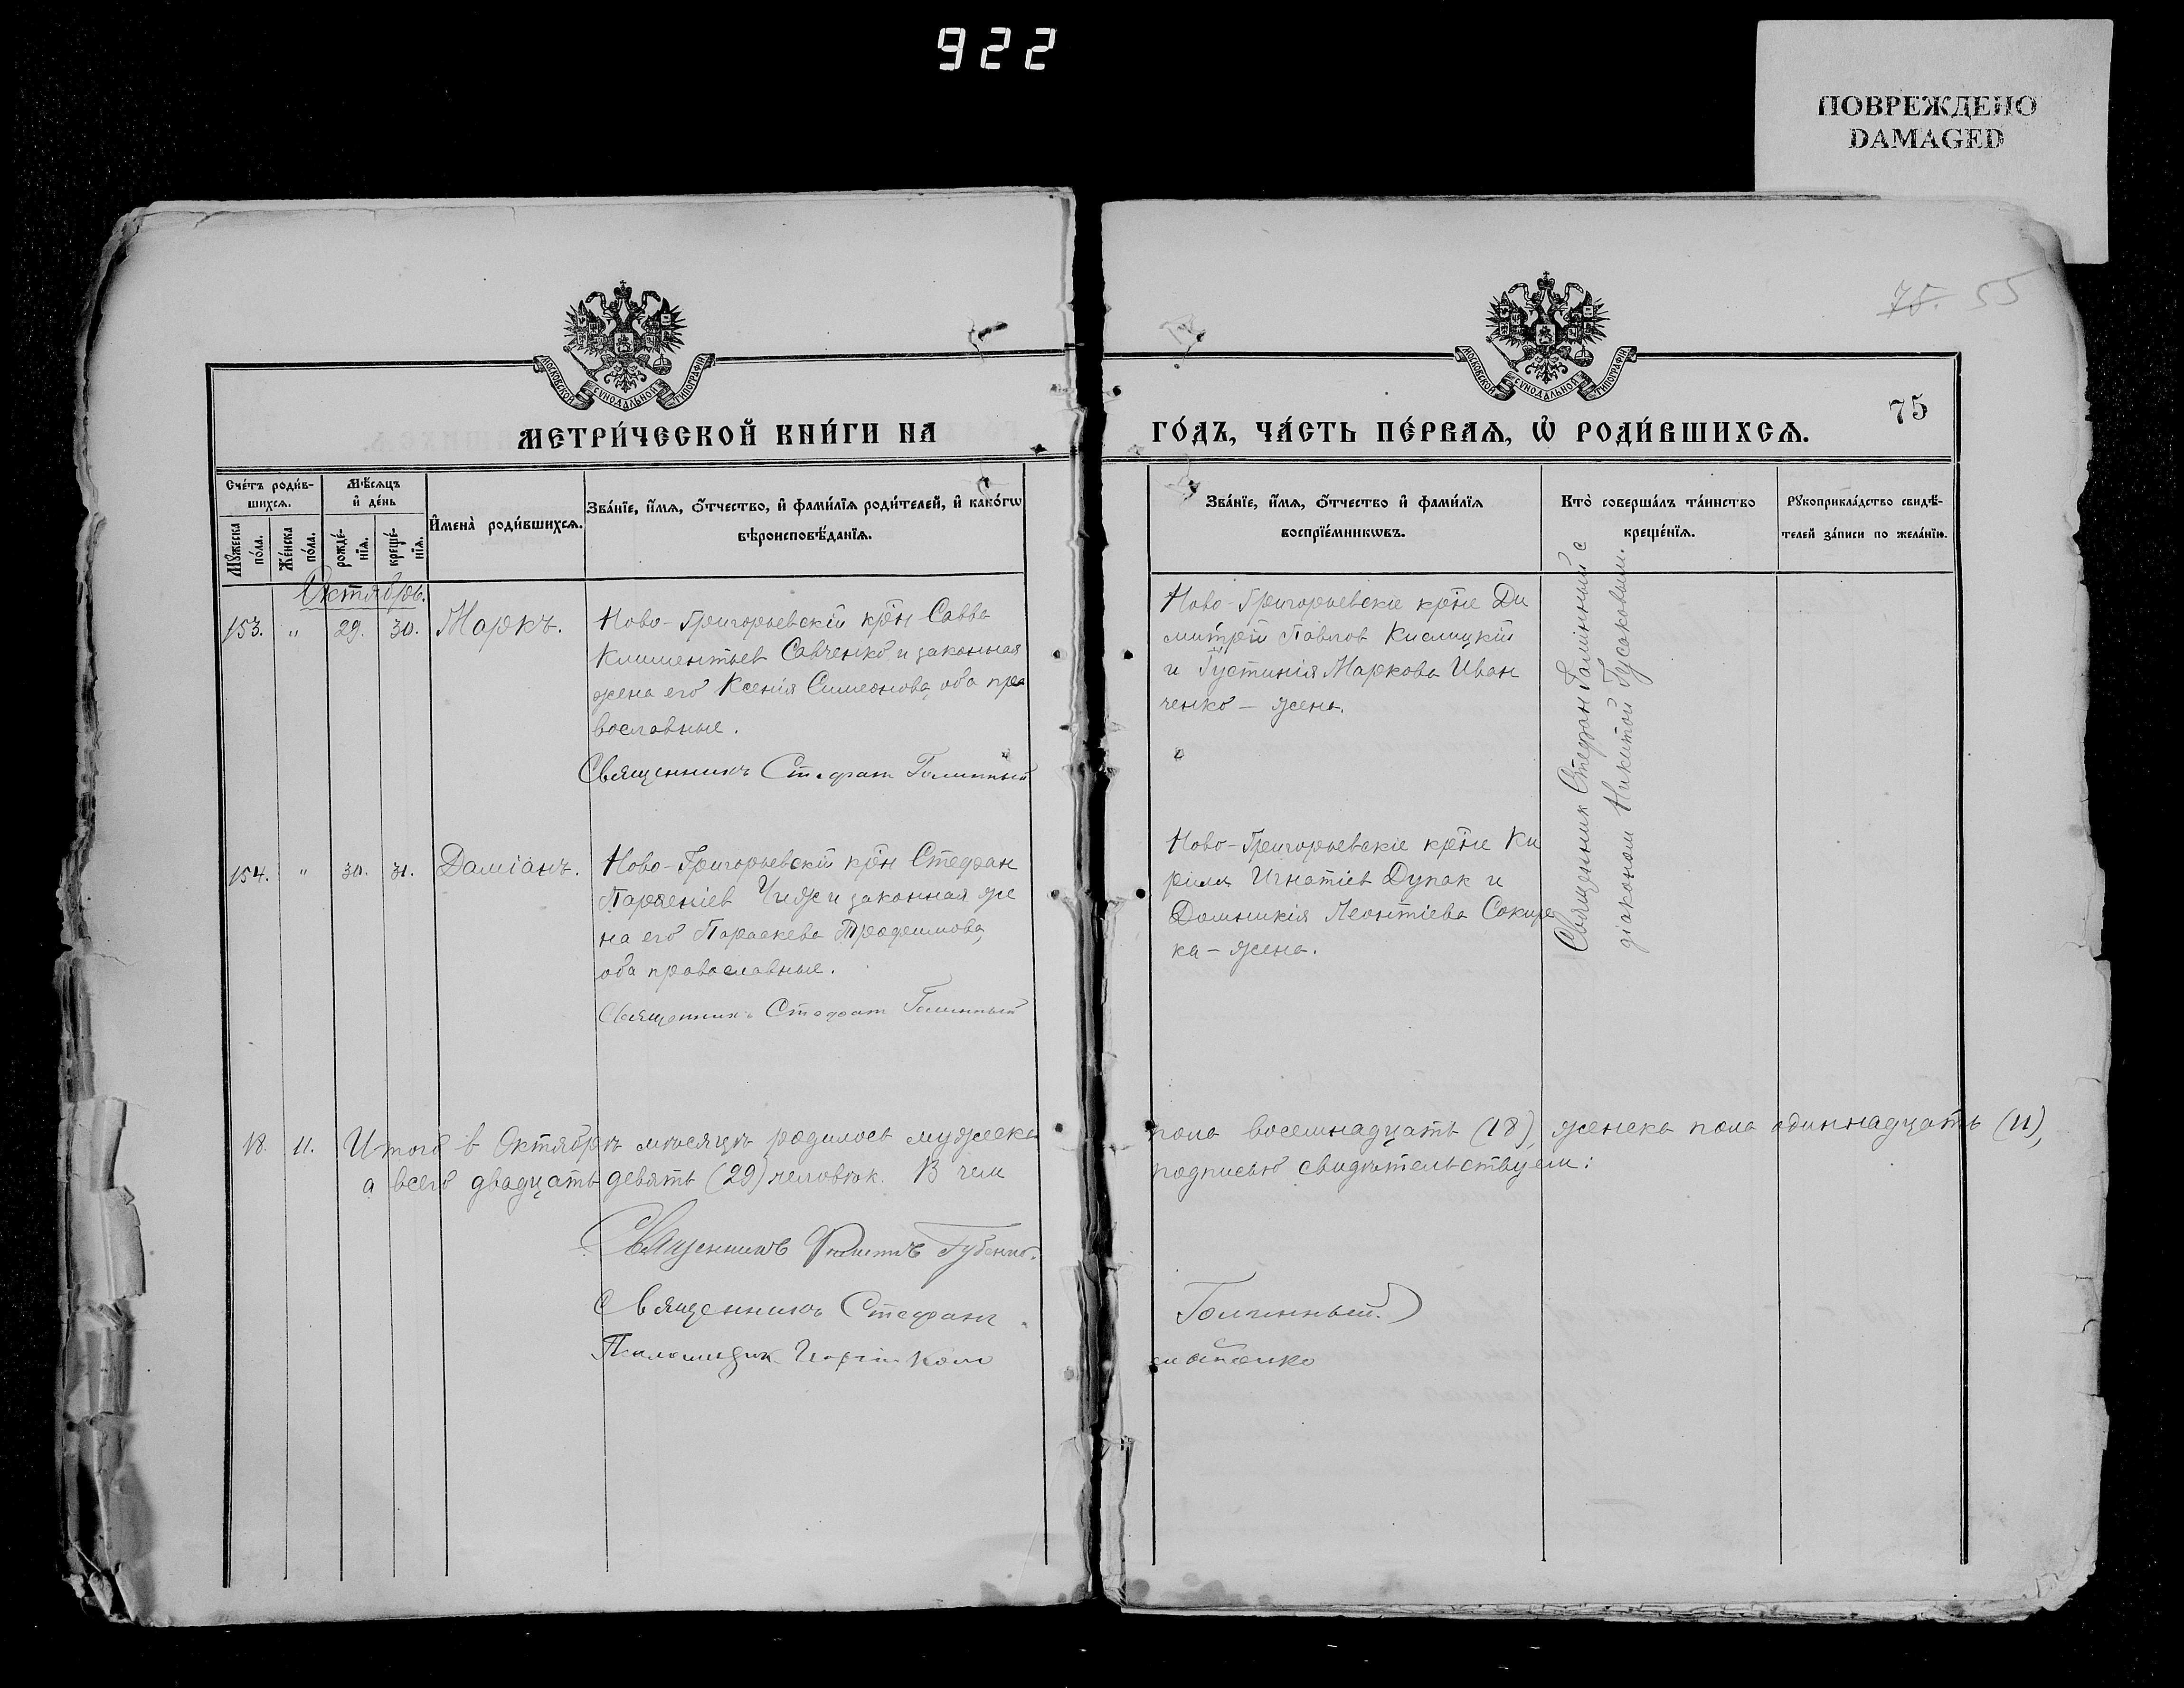 922
ПОВРЕЖДЕНО
DAMAGED
75. 55
МОСКОВСКОЙ СѴНОДАЛЬНОЙ ТИПОГРАФІИ
МОСКОВСКОЙ СѴНОДАЛЬНОЙ ТИПОГРАФІИ
МЕТРИ́ЧЕСКОЙ КНИ́ГИ НА
ГО́ДЪ, ЧА́СТЬ ПЕ́РВАѦ, Ѡ РОДИ́ВШИХСѦ.
75
Сче́тъ роди́в-
шихсѧ.
Мꙋ́жеска
по́ла.
Же́нска
по́ла.
Мѣ́сѧцъ
и҆ де́нь
рожде́-
нїѧ.
креще́-
нїѧ.
И҆мена̀ роди́вшихсѧ.
Зва́нїе, и҆́мѧ, ѻ҆́тчество, и҆ фами́лїѧ роди́телей, и҆ како́гѡ
вѣроисповѣ́данїѧ.
Зва́нїе, и҆́мѧ, ѻ҆́тчество и҆ фами́лїѧ
воспрїе́мникѡвъ.
Кто̀ соверша́лъ та́инство
креще́нїѧ.
Рꙋкоприкла́дство свидѣ́-
телей за́писи по жела́нїю.
Октябрь.
153. " 29. 30. Маркъ.
Ново-Григорьевскій крн Савва
Климентьев Савченко и законная
жена его Ксенія Симеонова, оба пра
вославные.
Священникъ Стефан Голинный
Ново-Григорьевскіе крне Ди
митрій Павлов Кислицкій
и Іустинія Маркова Иван
ченко – жена.
Священник Стефан Голинный с
діаконом Никитой Гусаковым.
154. " 30. 31. Даміанъ.
Ново-Григорьевскій крн Стефан
Парѳеніев Чиж и законная же
на его Параскева Трофимова,
оба православные.
Священникъ Стефан Голинный
Ново-Григорьевскіе крне Ки
рилл Игнатіев Дупак и
Домникія Леонтіева Сокире
ка – жена.
18. 11. Итого в Октябрѣ мѣсяцѣ родилось мужеска
пола восемнадцать (18), женска пола одиннадцать (11),
а всего двадцать девять (29) человѣк. В чем
подписью свидѣтельствуем:
Священникъ Губенко.
Священникъ Стефан
Голинный.
Псаломщик